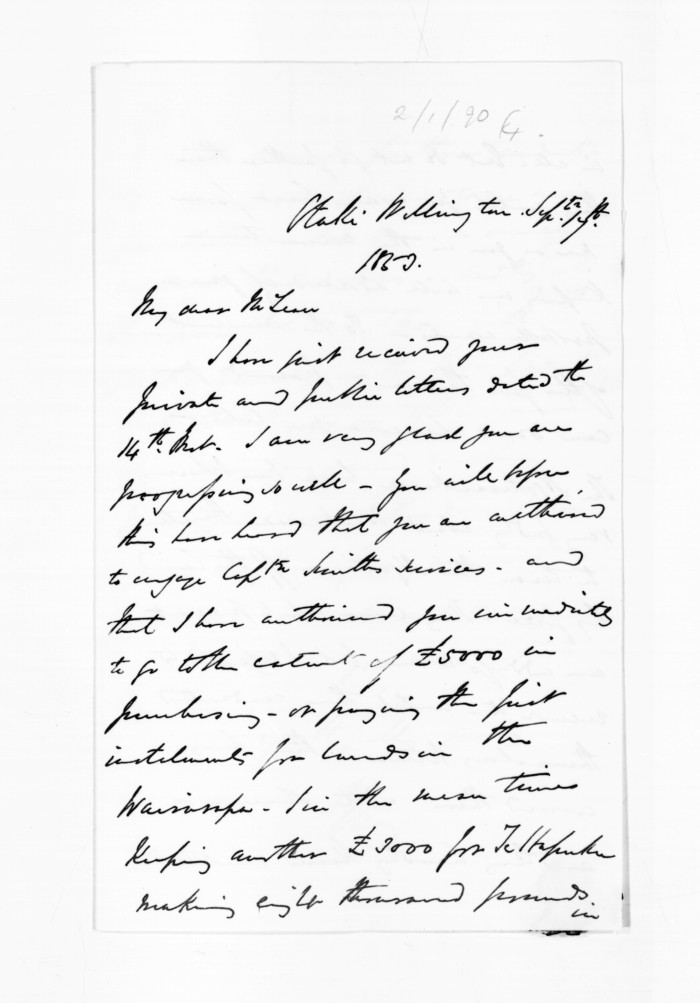 2/1/90
Otaki Wellington. Septr. 19th.
1853.
My dear McLean
I have just received your
private and public letters dated the
14th Inst. I am very glad you are
progressing so well – You will before
this have heard that you are authorised
to engage Captn Smiths services – and
that I have authorised you immediately
to go to the extent of £5000 in
purchasing – or paying the first
instalments for lands in the
Wairarapa – in the mean time
Keeping another £3000 for Te Hapuku
making eight thousand pounds
in